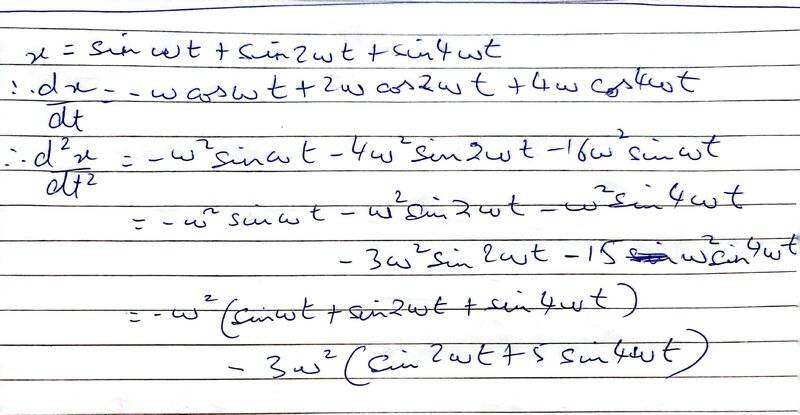 x = sin ωt + sin2ωt + sin4ωt
∴ dx/dt = ω cosωt + 2ω cos2ωt + 4ω cos4ωt
∴ d²x/dt² = -ω² sinωt - 4ω² sin2ωt - 16ω² sinωt
= -ω² sinωt - ω² sin2ωt - ω² sin4ωt
- 3ω² sin2ωt - 15 ω² sin4ωt
= -ω² (sinωt + sin2ωt + sin4ωt)
- 3ω² (sin2ωt + 5 sin4ωt)